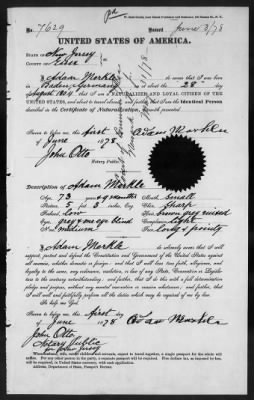 No. 7629 Issued June 3/78
UNITED STATES OF AMERICA.
STATE OF New Jersey
COUNTY OF Essex
I Adam Merkle do swear that I was born in
Baden Germany on or about the 28 day
August 1804, that I am a NATURALIZED AND LOYAL CITIZEN OF THE
UNITED STATES, and about to travel abroad; and further, that I am the Identical Person
described in the Certificate of Naturalization
Sworn to before me, this first day
of June 1878
John Otto
Notary Public
Description of Adam Merkle
Age, 73 years 9 months
Mouth, small
Stature, 5 feet 3 inches, Eng.
Chin, sharp
Forehead, low
Hair, brown grey mixed
Eyes, grey
Complexion, light
Nose, medium
Face, long &
I Adam Merkle do solemnly swear that I will
support, protect and defend the Constitution and Government of the United States against
all enemies, whether domestic or foreign; and that I will bear true faith, allegiance and
loyalty to the same, any ordinance, resolution, or law of any State, Convention or Legislature
to the contrary notwithstanding; and further, that I do this with a full determination,
pledge and purpose, without any mental reservation or evasion whatsoever; and further, that
I will well and faithfully perform all the duties which may be required of me by law.
So help me God.
Sworn to before me, this first day
of June 1878
John Otto
Notary Public
for New Jersey